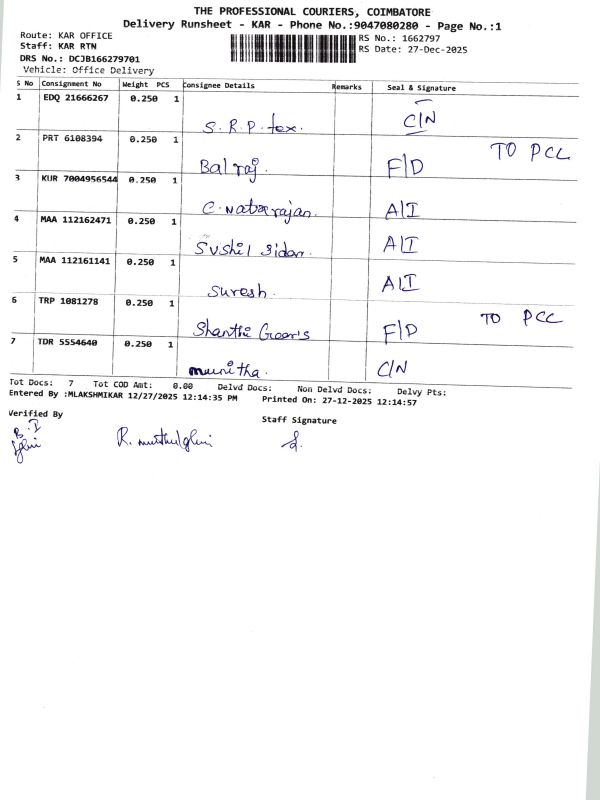 THE PROFESSIONAL COURIERS, COIMBATORE
Delivery Runsheet - KAR - Phone No.:9047080280 - Page No.:1
Route: KAR OFFICE
RS No.: 1662797
Staff: KAR RTN
RS Date: 27-Dec-2025
DRS No.: DCJB166279701
Vehicle: Office Delivery
S No Consignment No Weight PCS Consignee Details Remarks Seal & Signature
1 EDQ 21666267 0.250 1 S.R.P. tex. C/N
2 PRT 6108394 0.250 1 Bal raj. F/D TO PCC
3 KUR 7004956544 0.250 1 C. Natarajan. A/I
4 MAA 112162471 0.250 1 Sushil A/I
5 MAA 112161141 0.250 1 Suresh. A/I
6 TRP 1081278 0.250 1 Shanthi F/D TO PCC
7 TDR 5554640 0.250 1 C/N
Tot Docs: 7 Tot COD Amt: 0.00 Delvd Docs: Non Delvd Docs: Delvy Pts:
Entered By :MLAKSHMIKAR 12/27/2025 12:14:35 PM Printed On: 27-12-2025 12:14:57
Verified By
Staff Signature